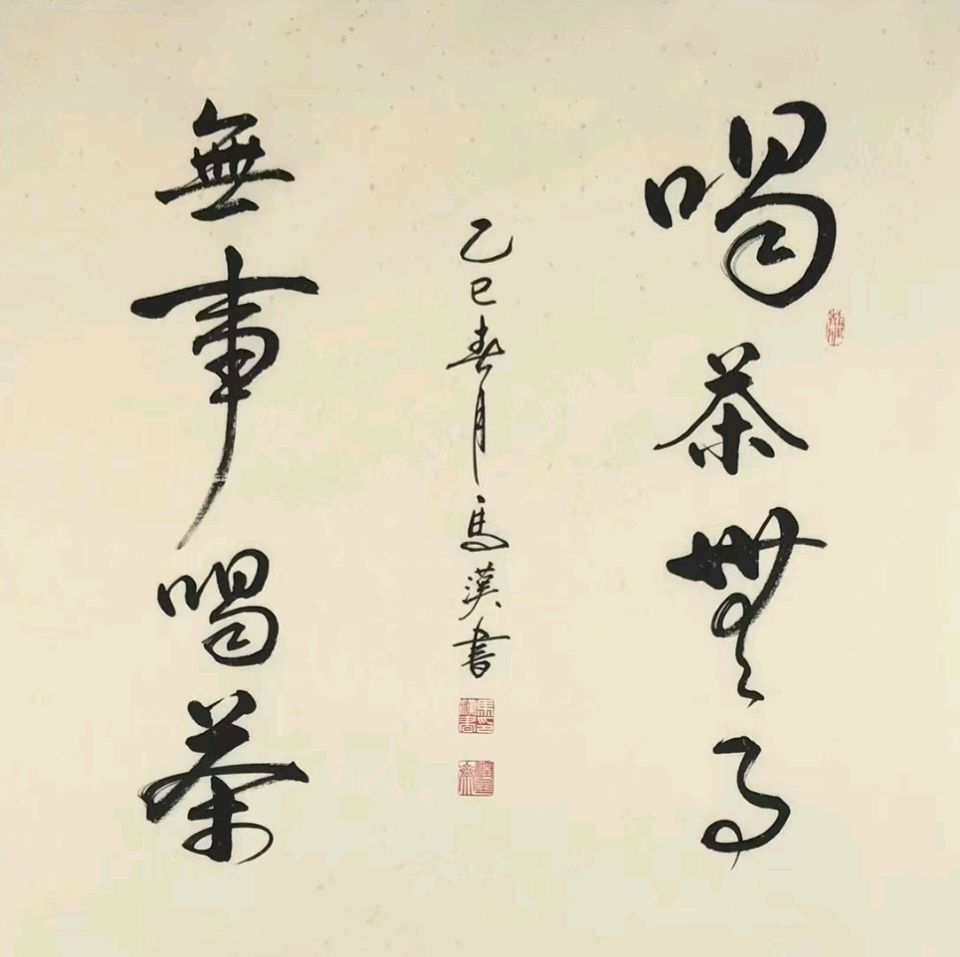 喝茶無事
無事喝茶
乙巳春月馬漢書